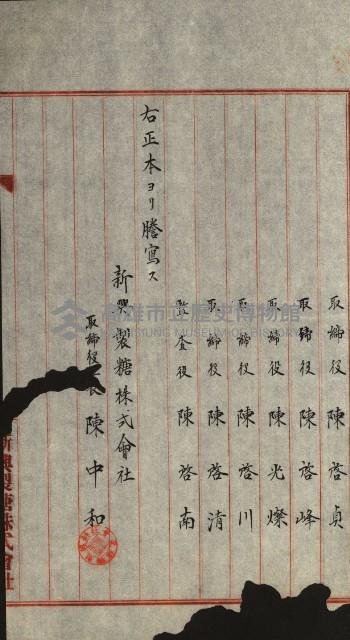 取締役 陳啓貞
取締役 陳啓峰
取締役 陳光燦
取締役 陳啓川
取締役 陳啓清
監査役 陳啓南
右正本ヨリ謄寫ス
新興製糖株式會社
取締役 長 陳中和
新興製糖株式會社
高雄市立歷史博物館
KAOHSIUNG MUSEUM OF HISTORY